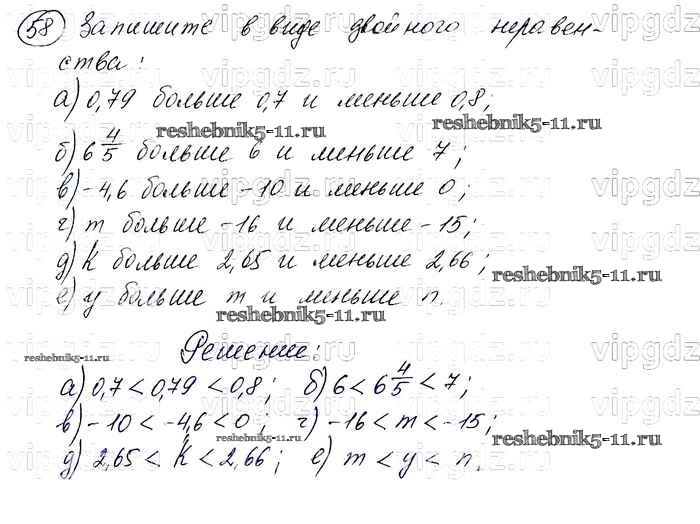 58 Запишите в виде двойного неравен-
ства:
а) 0,79 больше 0,7 и меньше 0,8;
reshebnik5-11.ru
reshebnik5-11.ru
б) 6 4/5 больше 6 и меньше 7;
в) -4,6 больше -10 и меньше 0;
г) m больше -16 и меньше -15;
д) k больше 2,65 и меньше 2,66;
reshebnik5-11.ru
е) y больше m и меньше n.
reshebnik5-11.ru
Решение:
reshebnik5-11.ru
а) 0,7 < 0,79 < 0,8; б) 6 < 6 4/5 < 7;
в) -10 < -4,6 < 0; г) -16 < m < -15;
reshebnik5-11.ru
reshebnik5-11.ru
д) 2,65 < k < 2,66; е) m < y < n.
vipgdz